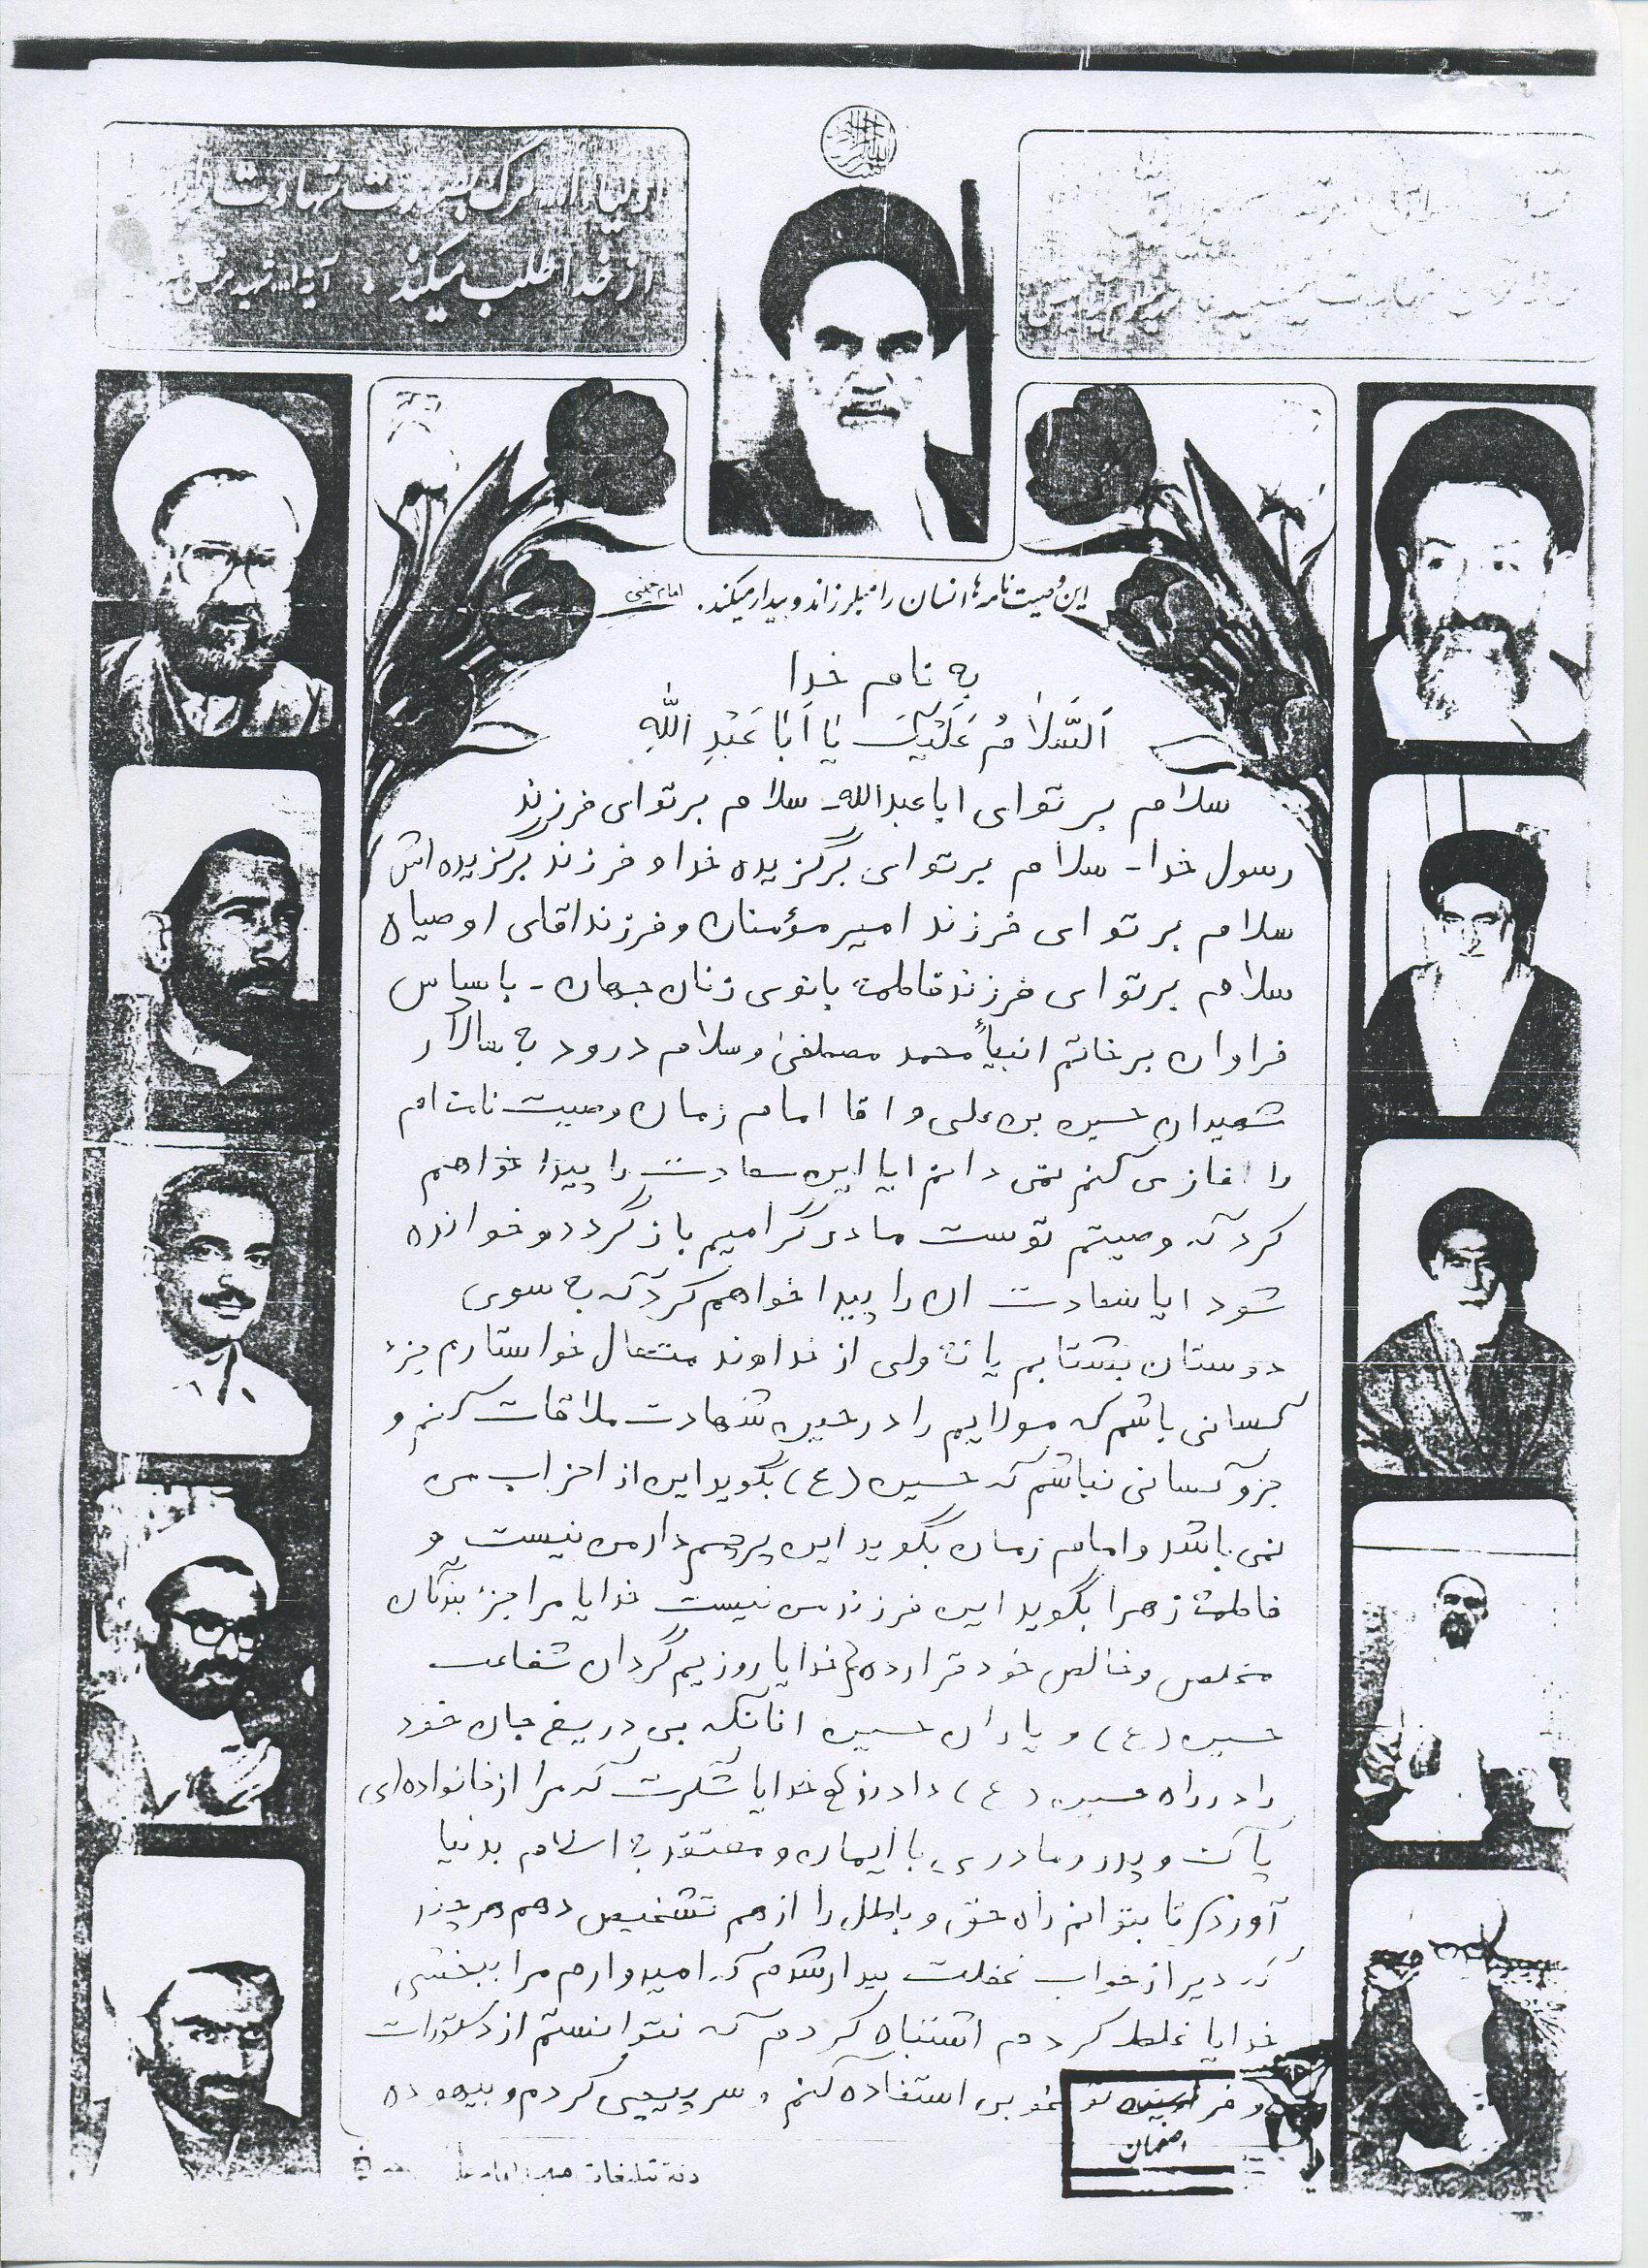 از خدا طلب میکند. آیة ا... شهید
این وصیت نامه‌ها انسان را میلرزاند و بیدار میکند. امام خمینی
به نام خدا
اَلسَّلامُ عَلَیْکَ یا اَبا عَبْدِ اللهِ
سلام بر تو ای ابا عبدالله - سلام بر تو ای فرزند
رسول خدا - سلام بر تو ای برگزیده خدا و فرزند برگزیده اش
سلام بر تو ای فرزند امیر مؤمنان و فرزند اقای اوصیاه
سلام بر تو ای فرزند فاطمه بانوی زنان جهان - با سپاس
فراوان بر خاتم انبیأ محمد مصطفی و سلام درود به سالار
شهیدان حسین بن علی و اقا امام زمان وصیت نامه ام
را اغاز می کنم نمی دانم ایا این سعادت را پیدا خواهم
کرد که وصیتم توست مادر گرامیم باز گردد و خوانده
شود ایا سعادت ان را پیدا خواهم کرد که به سوی
دوستان بشتابم یا نه ولی از خداوند متعال خواستارم جزء
کسانی باشم که مولایم را در حین شهادت ملاقات کنم و
جزو کسانی نباشم که حسین (ع) بگوید این از احزاب من
نمی باشد و امام زمان بگوید این پرچم دار من نیست و
فاطمه زهرا بگوید این فرزند من نیست خدایا مرا جزء بندگان
مخلص و خالص خود قرار ده خدایا روزیم گردان شفاعت
حسین (ع) و یاران حسین انانکه بی دریغ جان خود
را در راه حسین (ع) دادند خدایا شکرت که مرا از خانواده ای
پاک و پدر و مادری با ایمان و معتقد به اسلام بدنیا
آورد تا بتوانم راه حق و باطل را از هم تشخیص دهم هر چند
که دیر از خواب غفلت بیدار شدم که امیدوارم مرا ببخشی
خدایا غلط کردم اشتباه کردم که نتوانستم از دستورات
و تو بخوبی استفاده کنم و سرپیچی کردم و بیهوده
اصفهان